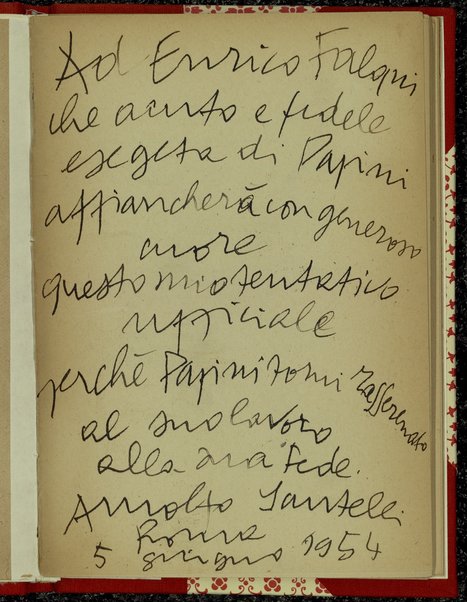 Ad Enrico Falqui
che acuto e fedele
esegeta di Papini
affiancherà con generoso
cuore
questo mio tentativo
ufficiale
perché Papini torni rasserenato
al suo lavoro
alla sua fede.
Arnolfo Santelli
Roma
5 giugno 1954